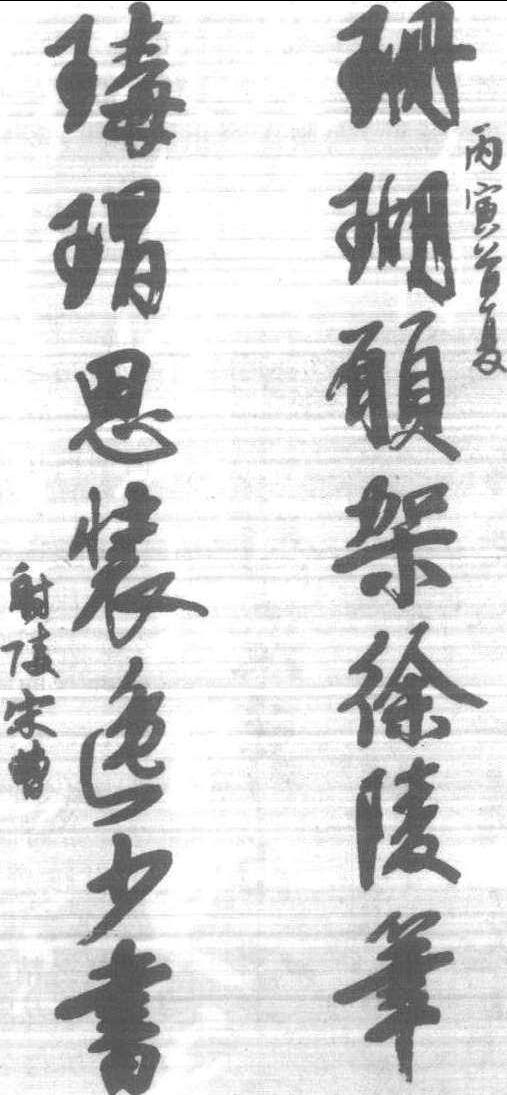 丙寅首夏
珊瑚願架徐陵筆
瑇瑁思裝逸少書
射陵宋曹